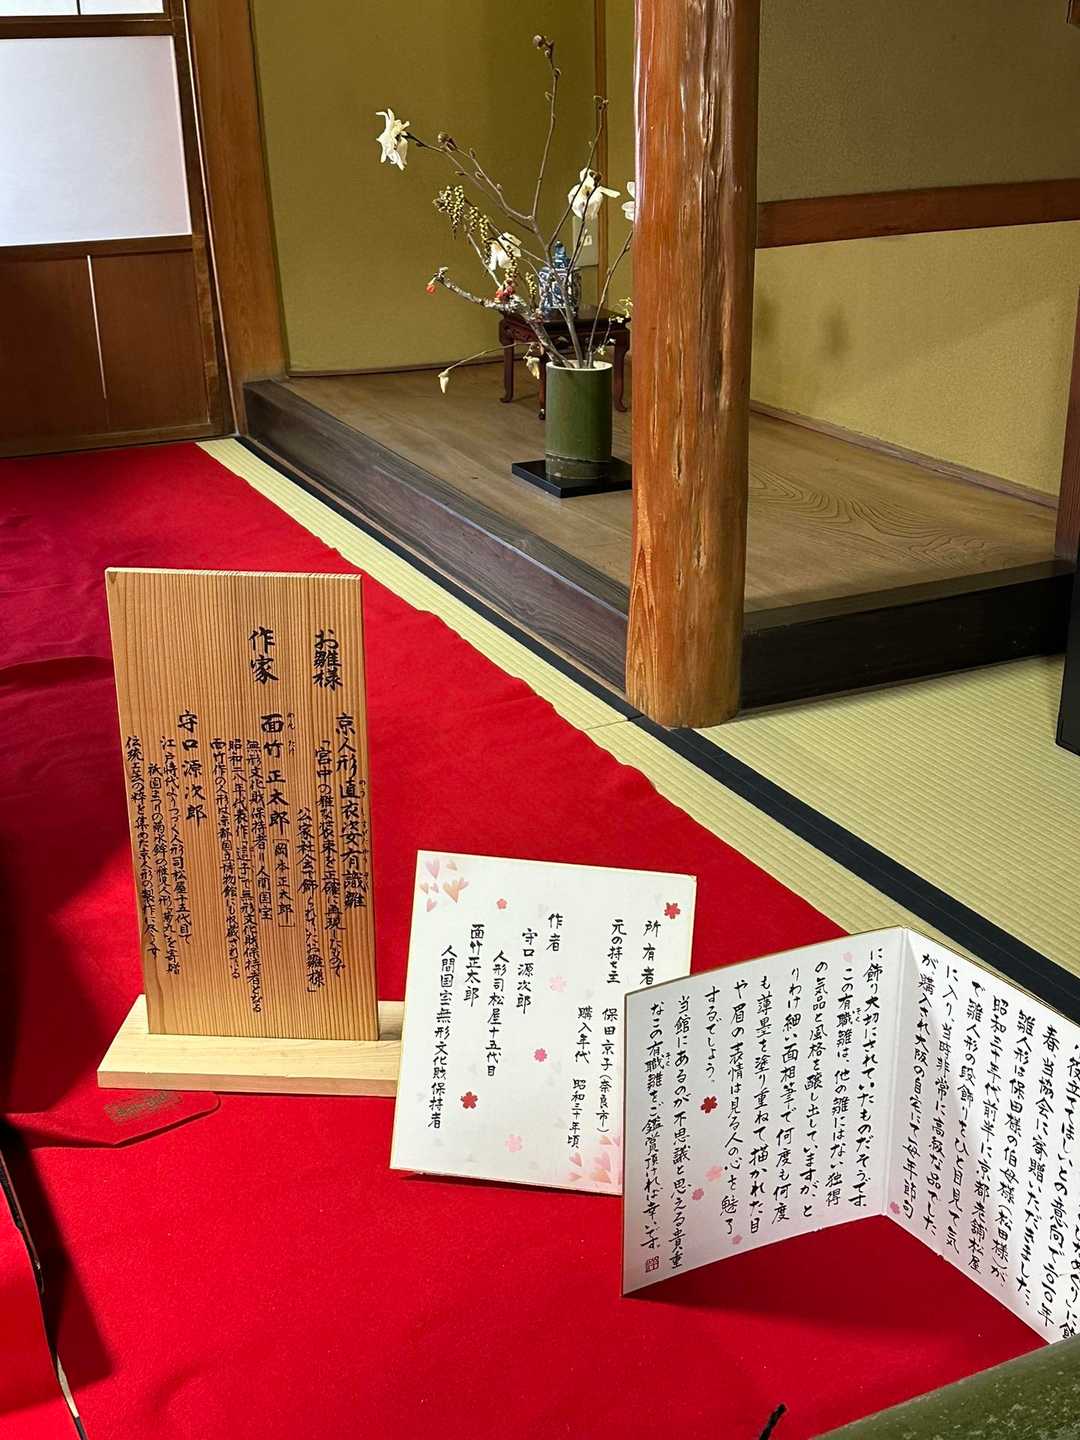 お雛様
京人形直衣姿有識雛
「宮中の雅な装束を正確に再現したもので
公家社会で飾られていたお雛様」
作家
面竹正太郎「岡本正太郎」
めん たけ
無形文化財保持者=人間国宝
昭和二八年代表作「逗子」で無形文化財保持者となる
面竹作の人形は京都国立博物館にも収蔵されている
守口源次郎
江戸時代よりつづく人形司松屋十五代目で
祇園まつりの菊水鉾の稚児人形「菊丸」を寄贈
伝統工芸の粋を集めた京人形の製作に尽くす
所有者
元の持ち主 保田京子(奈良市)
購入年代 昭和三十年頃
作者
守口源次郎
人形司松屋十五代目
面竹正太郎
人間国宝無形文化財保持者
役立てほしいとの意向で二〇二〇年
春、当協会に寄贈いただきました。
雛人形は保田様の伯母様(松田様)が、
昭和三十年代前半に京都老舗松屋
で雛人形の段飾りをひと目見て気
に入り、当時非常に高級な品でした
が購入され大阪の自宅にて毎年節句
に飾り大切にされていたものだそうです。
この有職雛は、他の雛にはない独得
の気品と風格を醸し出していますが、と
りわけ細い面相筆で何度も何度
も薄墨を塗り重ねて描かれた目
や眉の表情は見る人の心を魅了
するでしょう。
当館にあるのが不思議と思える貴重
なこの有職雛をご鑑賞頂ければ幸いです。